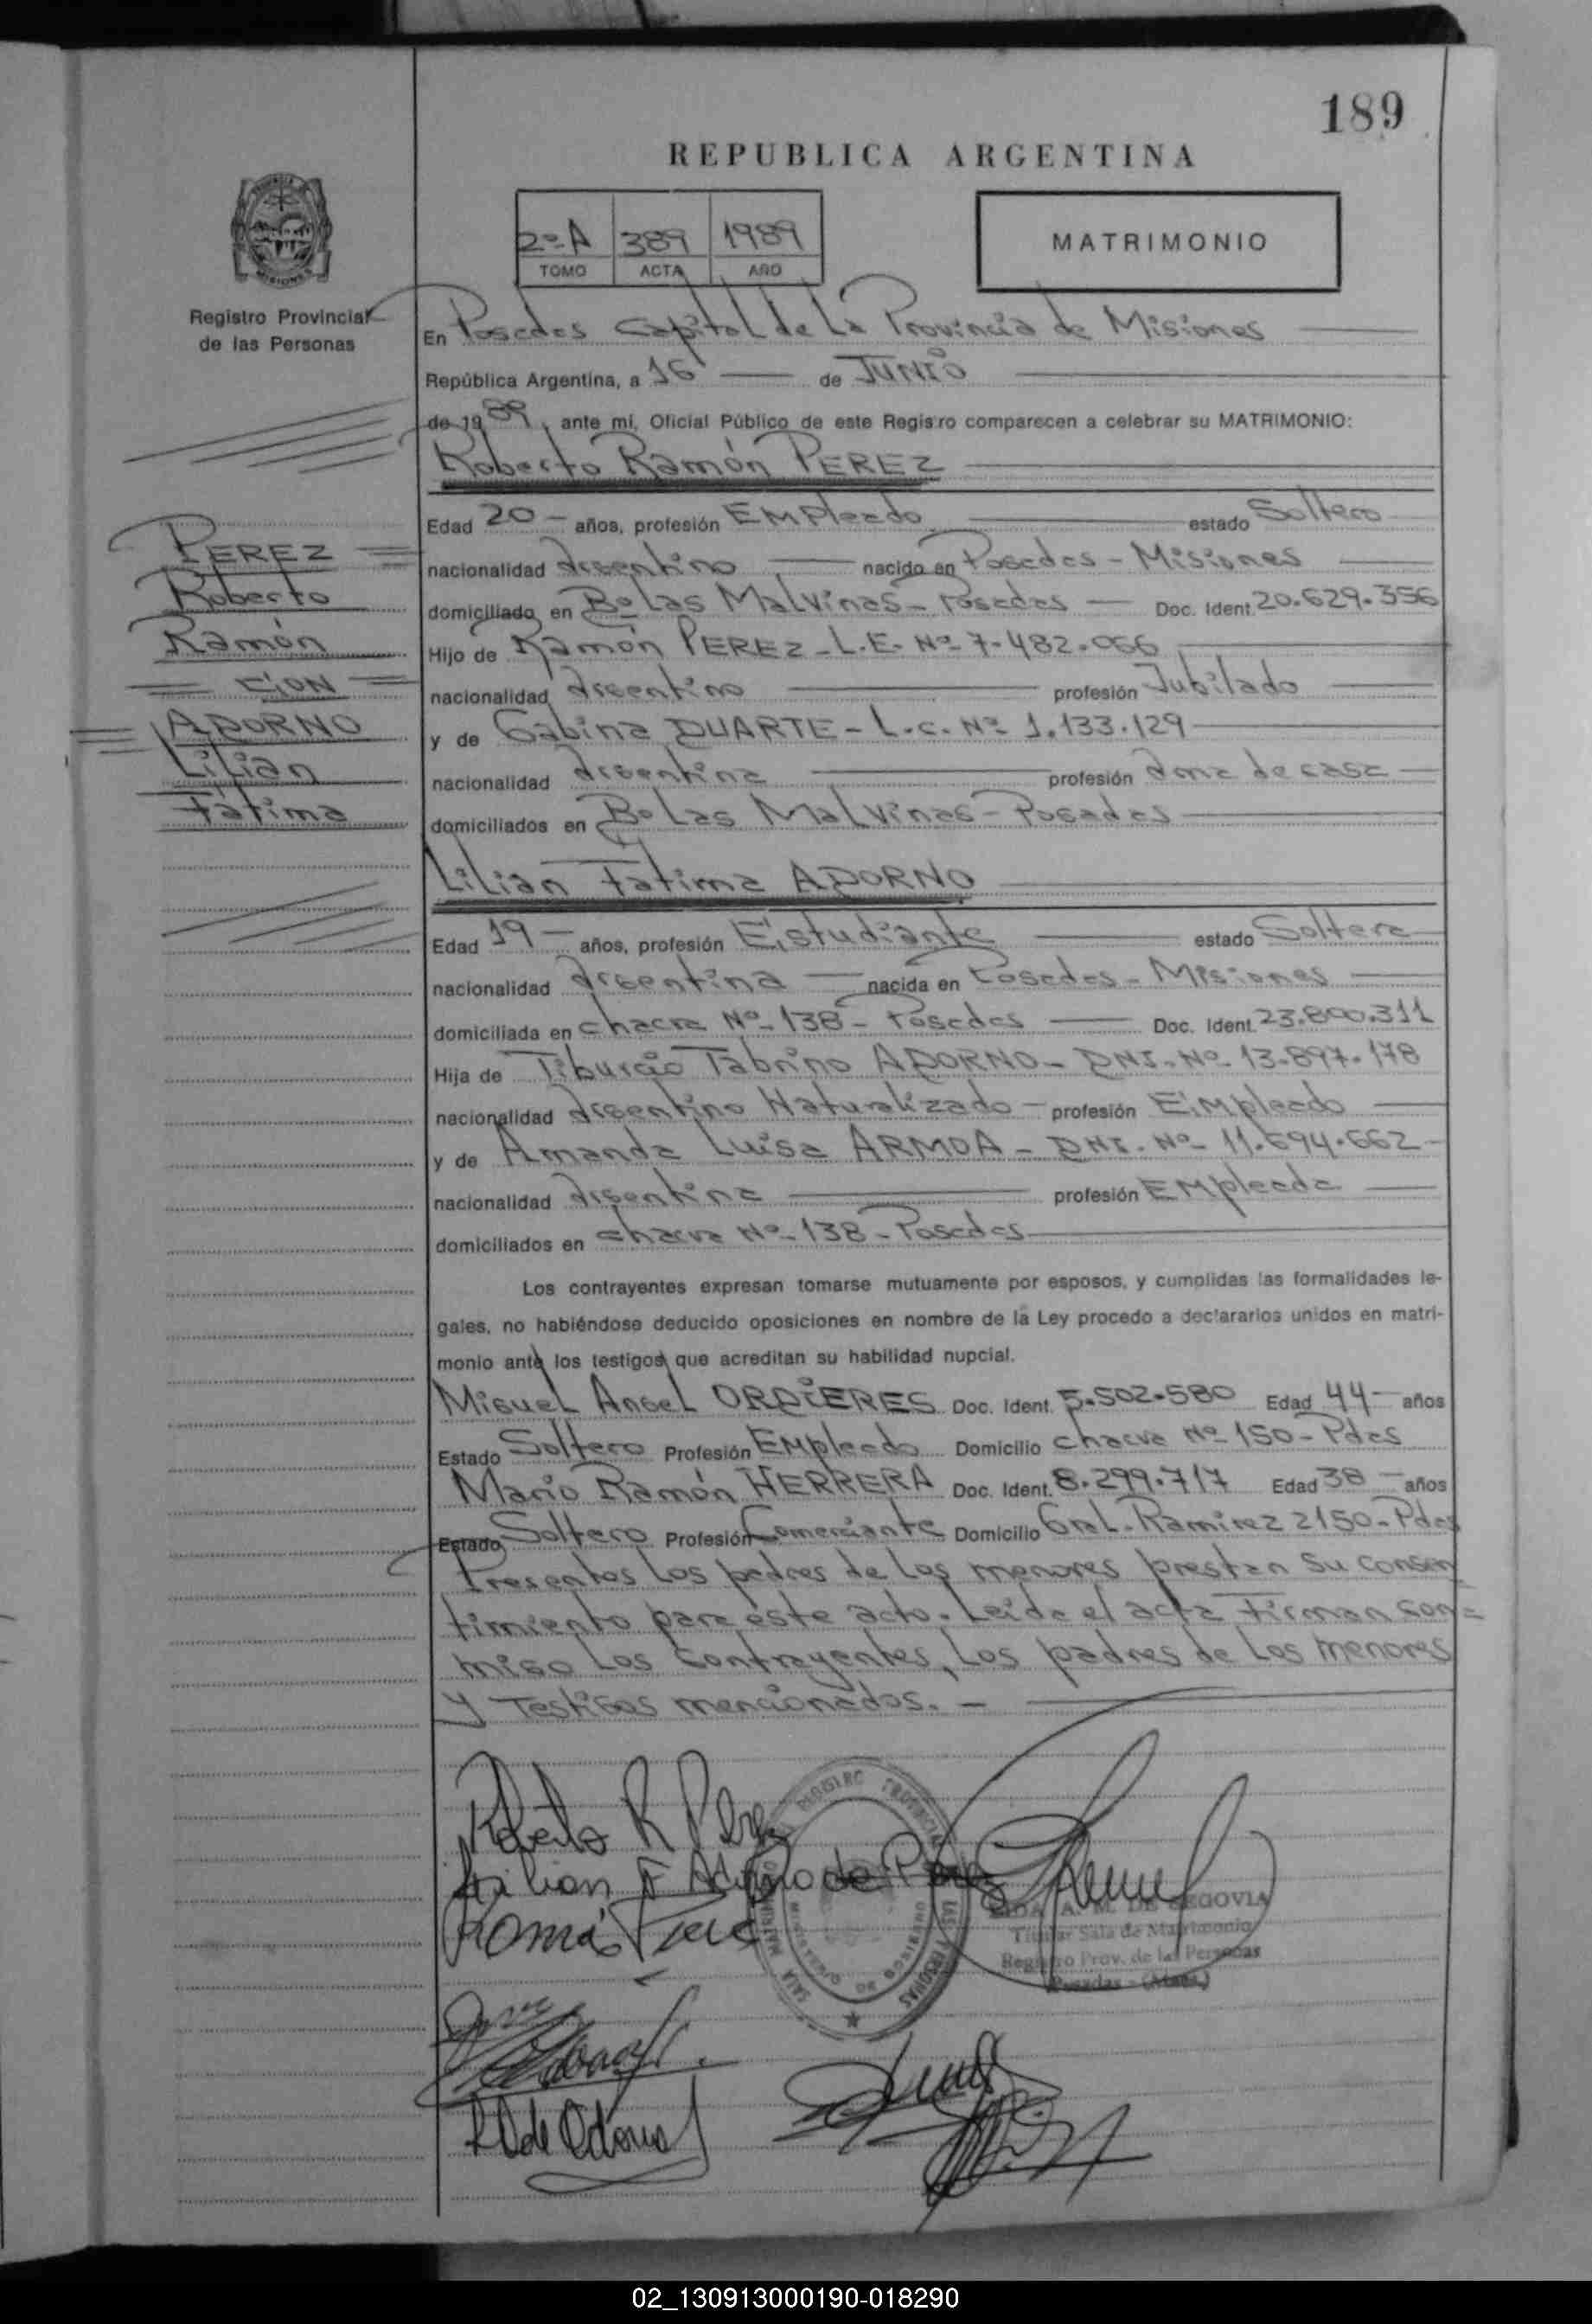 189
REPUBLICA ARGENTINA
2º A 389 1989
TOMO ACTA AÑO
MATRIMONIO
MISIONES
Registro Provincial
de las Personas
En Posadas Capital de La Provincia de Misiones
República Argentina, a 16 de JUNIO
de 1989, ante mí, Oficial Público de este Registro comparecen a celebrar su MATRIMONIO:
Roberto Ramón PEREZ
Edad 20 años, profesión EMPleado estado Soltero
nacionalidad Argentino nacido en Posadas - Misiones
domiciliado en Bº Las Malvinas - Posadas Doc. Ident. 20.629.356
Hijo de Ramón PEREZ - L.E. Nº 7.482.066
nacionalidad Argentino profesión Jubilado
y de Gabina DUARTE - L.C. Nº 1.133.129
nacionalidad Argentina profesión Ama de casa
domiciliados en Bº Las Malvinas - Posadas
PEREZ
Roberto
Ramón
CION
ADORNO
Lilian
Fátima
Lilian Fatima ADORNO
Edad 19 años, profesión Estudiante estado Soltera
nacionalidad Argentina nacida en Posadas - Misiones
domiciliada en chacra Nº 138 - Posadas Doc. Ident. 23.800.311
Hija de Tiburcio ADORNO - DNI. Nº 13.897.178
nacionalidad Argentino Naturalizado - profesión EMpleado
y de Amanda Luisa ARMOA - DNI. Nº 11.694.662
nacionalidad Argentina profesión EMpleada
domiciliados en chacra Nº 138 - Posadas
Los contrayentes expresan tomarse mutuamente por esposos, y cumplidas las formalidades le-
gales, no habiéndose deducido oposiciones en nombre de la Ley procedo a declararlos unidos en matri-
monio ante los testigos que acreditan su habilidad nupcial.
Miguel Angel ORDIERES Doc. Ident. 5.502.580 Edad 44 años
Estado Soltero Profesión EMpleado Domicilio chacra Nº 150 - Pdas
Mario Ramón HERRERA Doc. Ident. 8.299.717 Edad 38 años
Estado Soltero Profesión Comerciante Domicilio Gral. Ramirez 2150 - Pdas
Presentes Los padres de Los menores prestan su consen
timiento para éste acto. Leida el acta Firman con=
migo Los Contrayentes, Los padres de Los menores
y Testigos mencionados. -
Roberto R Perez
Lilian F Adorno de Perez
REGISTRO PROVINCIAL LAS PERSONAS
A. M. DE SEGOVIA
Titular Sala de Matrimonio
Registro Prov. de las Personas
Posadas - (Mnes.)
02_130913000190-018290